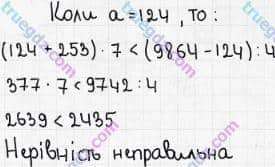 Коли а = 124, то:
(124 + 253) · 7 < (9864 - 124) : 4
377 · 7 < 9742 : 4
2639 < 2435
Нерівність неправильна